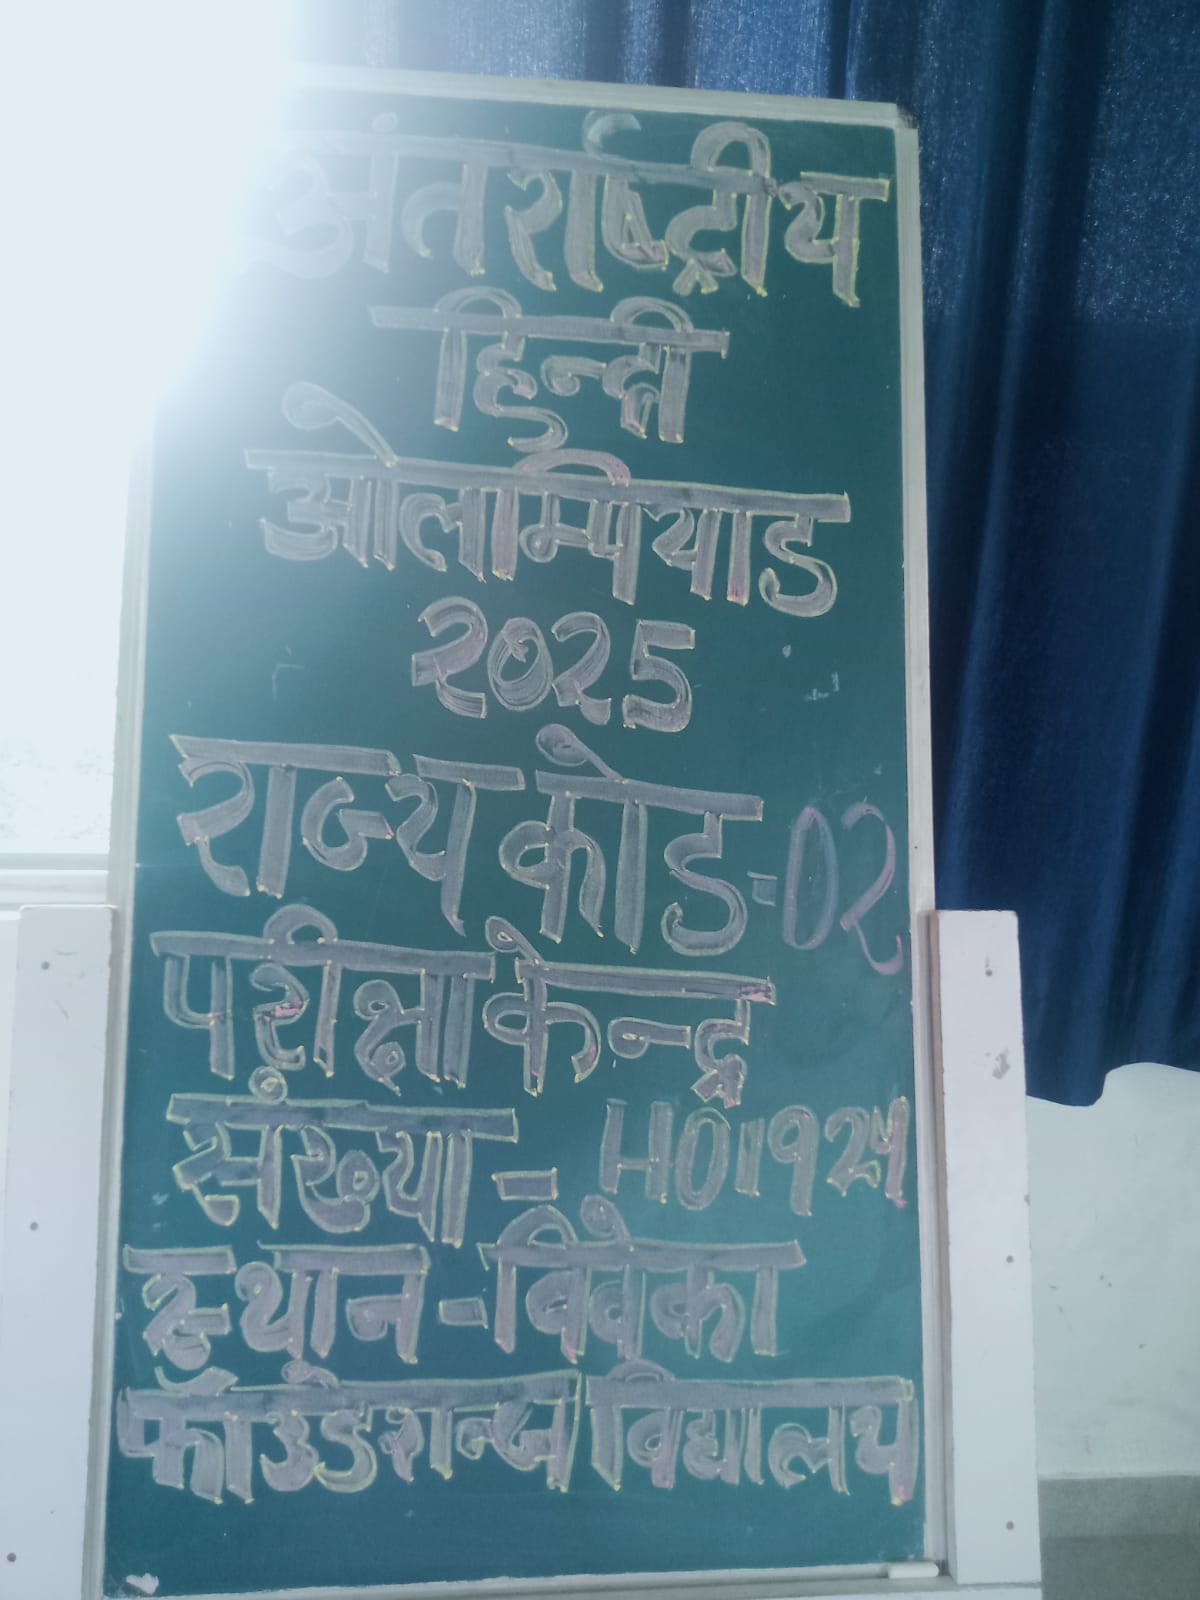 अंतर्राष्ट्रीय
हिन्दी
ओलम्पियाड
२०२5
राज्य कोड-02
परीक्षा केन्द्र
संख्या - H011924
स्थान - विवेका
फॉउंडेशन्स विद्यालय